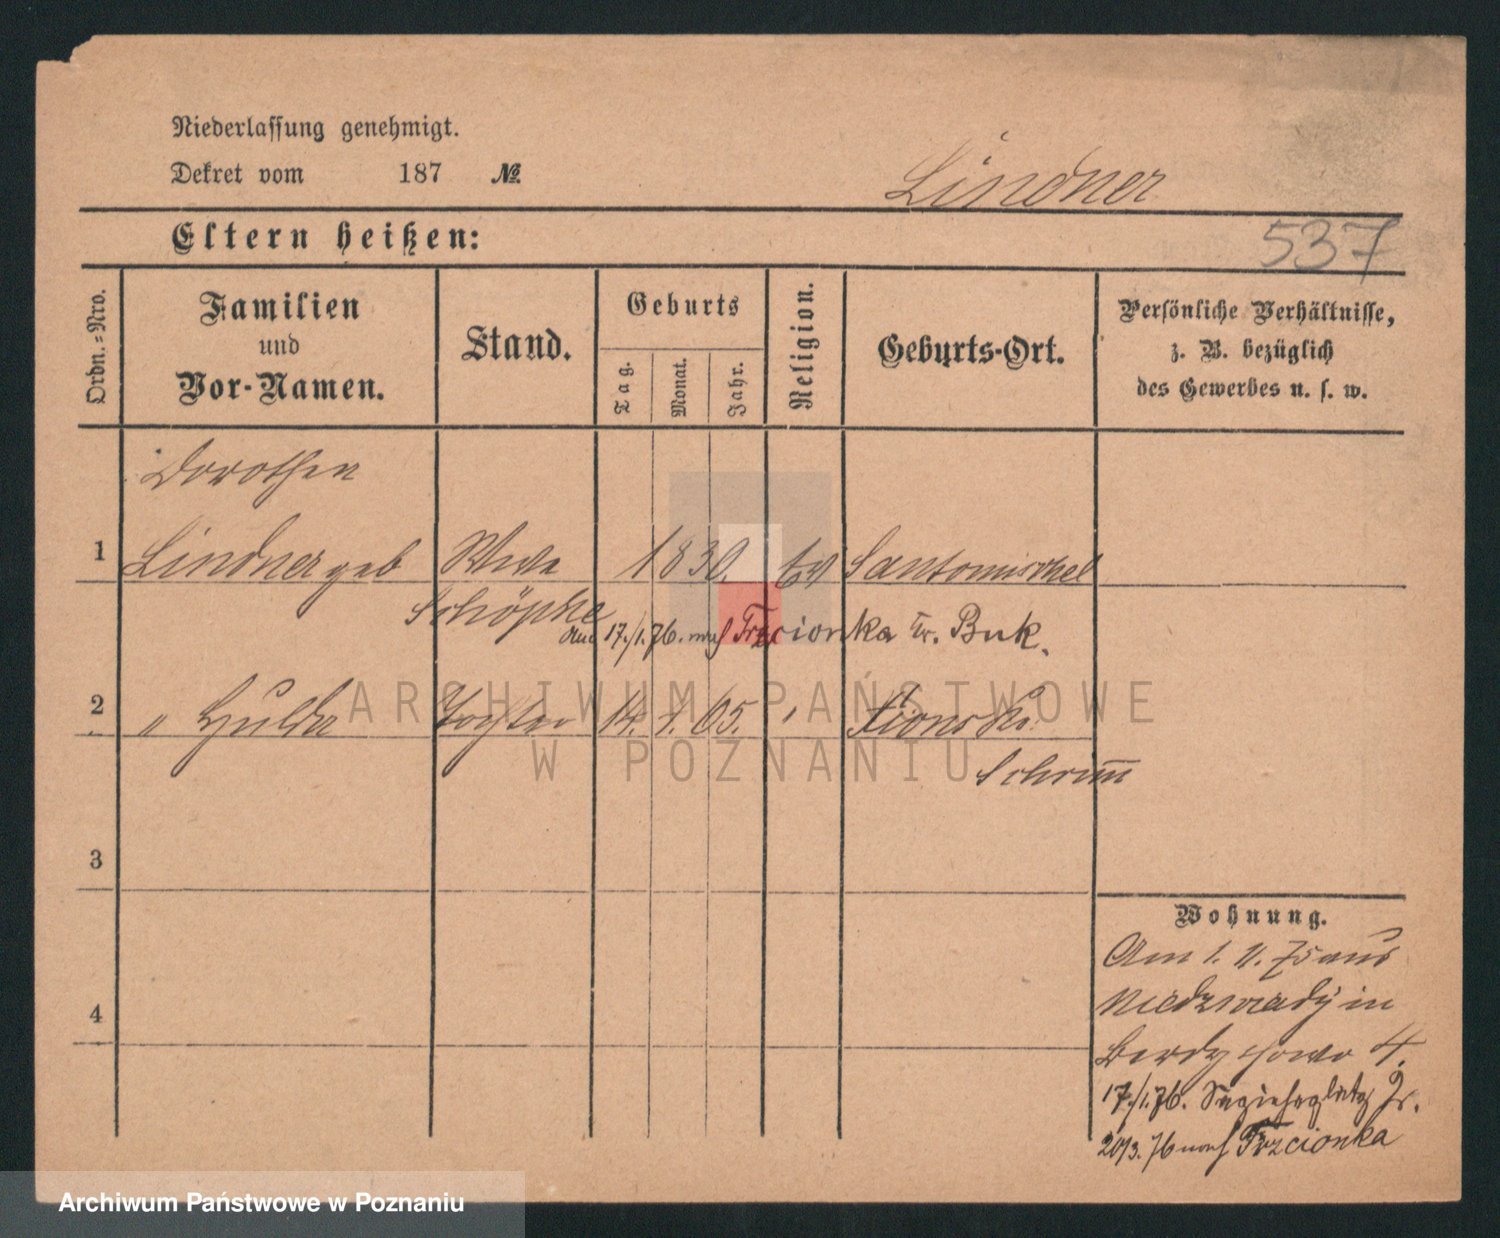 Niederlassung genehmigt.
Dekret vom 187 №
Lindner
Eltern heißen:
537
Ordn.=Nro.
Familien
und
Vor-Namen.
Stand.
Geburts
Tag.
Monat.
Jahr.
Religion.
Geburts-Ort.
Persönliche Verhältnisse,
z. B. bezüglich
des Gewerbes u. s. w.
Dorothea
1 Lindner geb Wwe 1830. ev Santomischel
Schöpke
am 17./1.76. nach Trzcionka Kr. Buk.
2 " Hulda Tochter 14. 1. 65. "
Schrimm
3
Wohnung.
Am 1. 11. 75 aus
Niedzwiady in
4
Berdychowo 4.
17./1.76.
20/3. 76 nach Trzcionka
ARCHIWUM PAŃSTWOWE
W POZNANIU
Archiwum Państwowe w Poznaniu